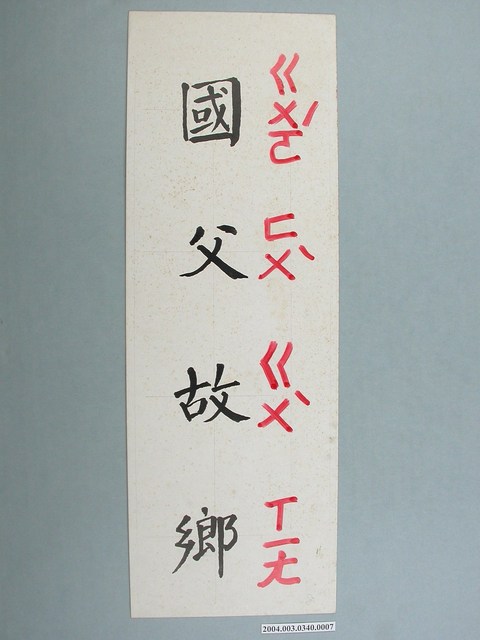 國父故鄉
ㄍㄨㄛˊ ㄈㄨˋ ㄍㄨˋ ㄒㄧㄤ
2004.003.0340.0007